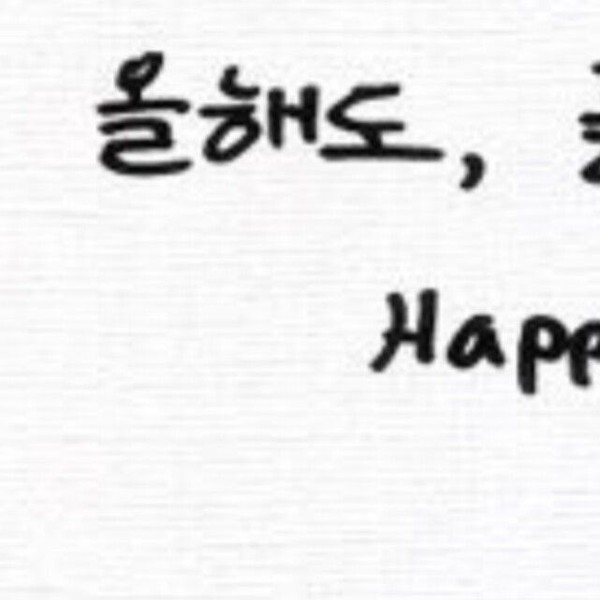 올해도,
Happ